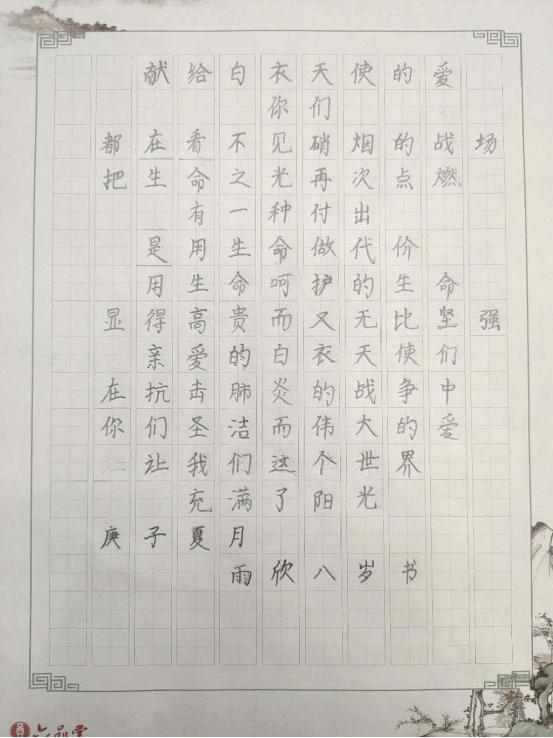 献给白衣天使的爱
你们
都在看不见硝烟的战场
把生命之光再次点燃
有一种付出
是用生命做代价
用生命呵护的生命
显得高贵而又无比坚强
亲爱的白衣天使们
在抗击肺炎的战争中
你们圣洁而伟大的爱
让我们这个世界
充满了阳光
庚子夏月
雨欣八岁书